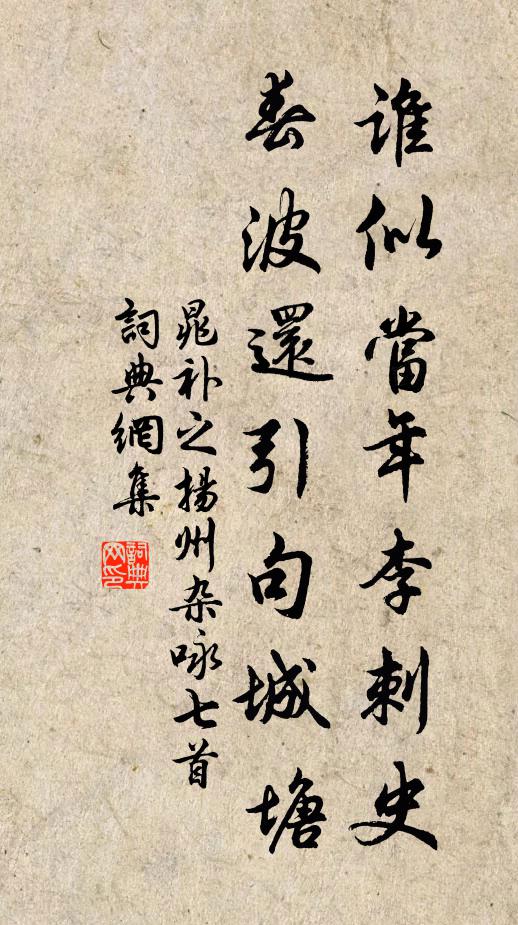 誰似當年李刺史
春波還引句城塘
晁补之揚州杂咏七首
詞典網集
詞典网印